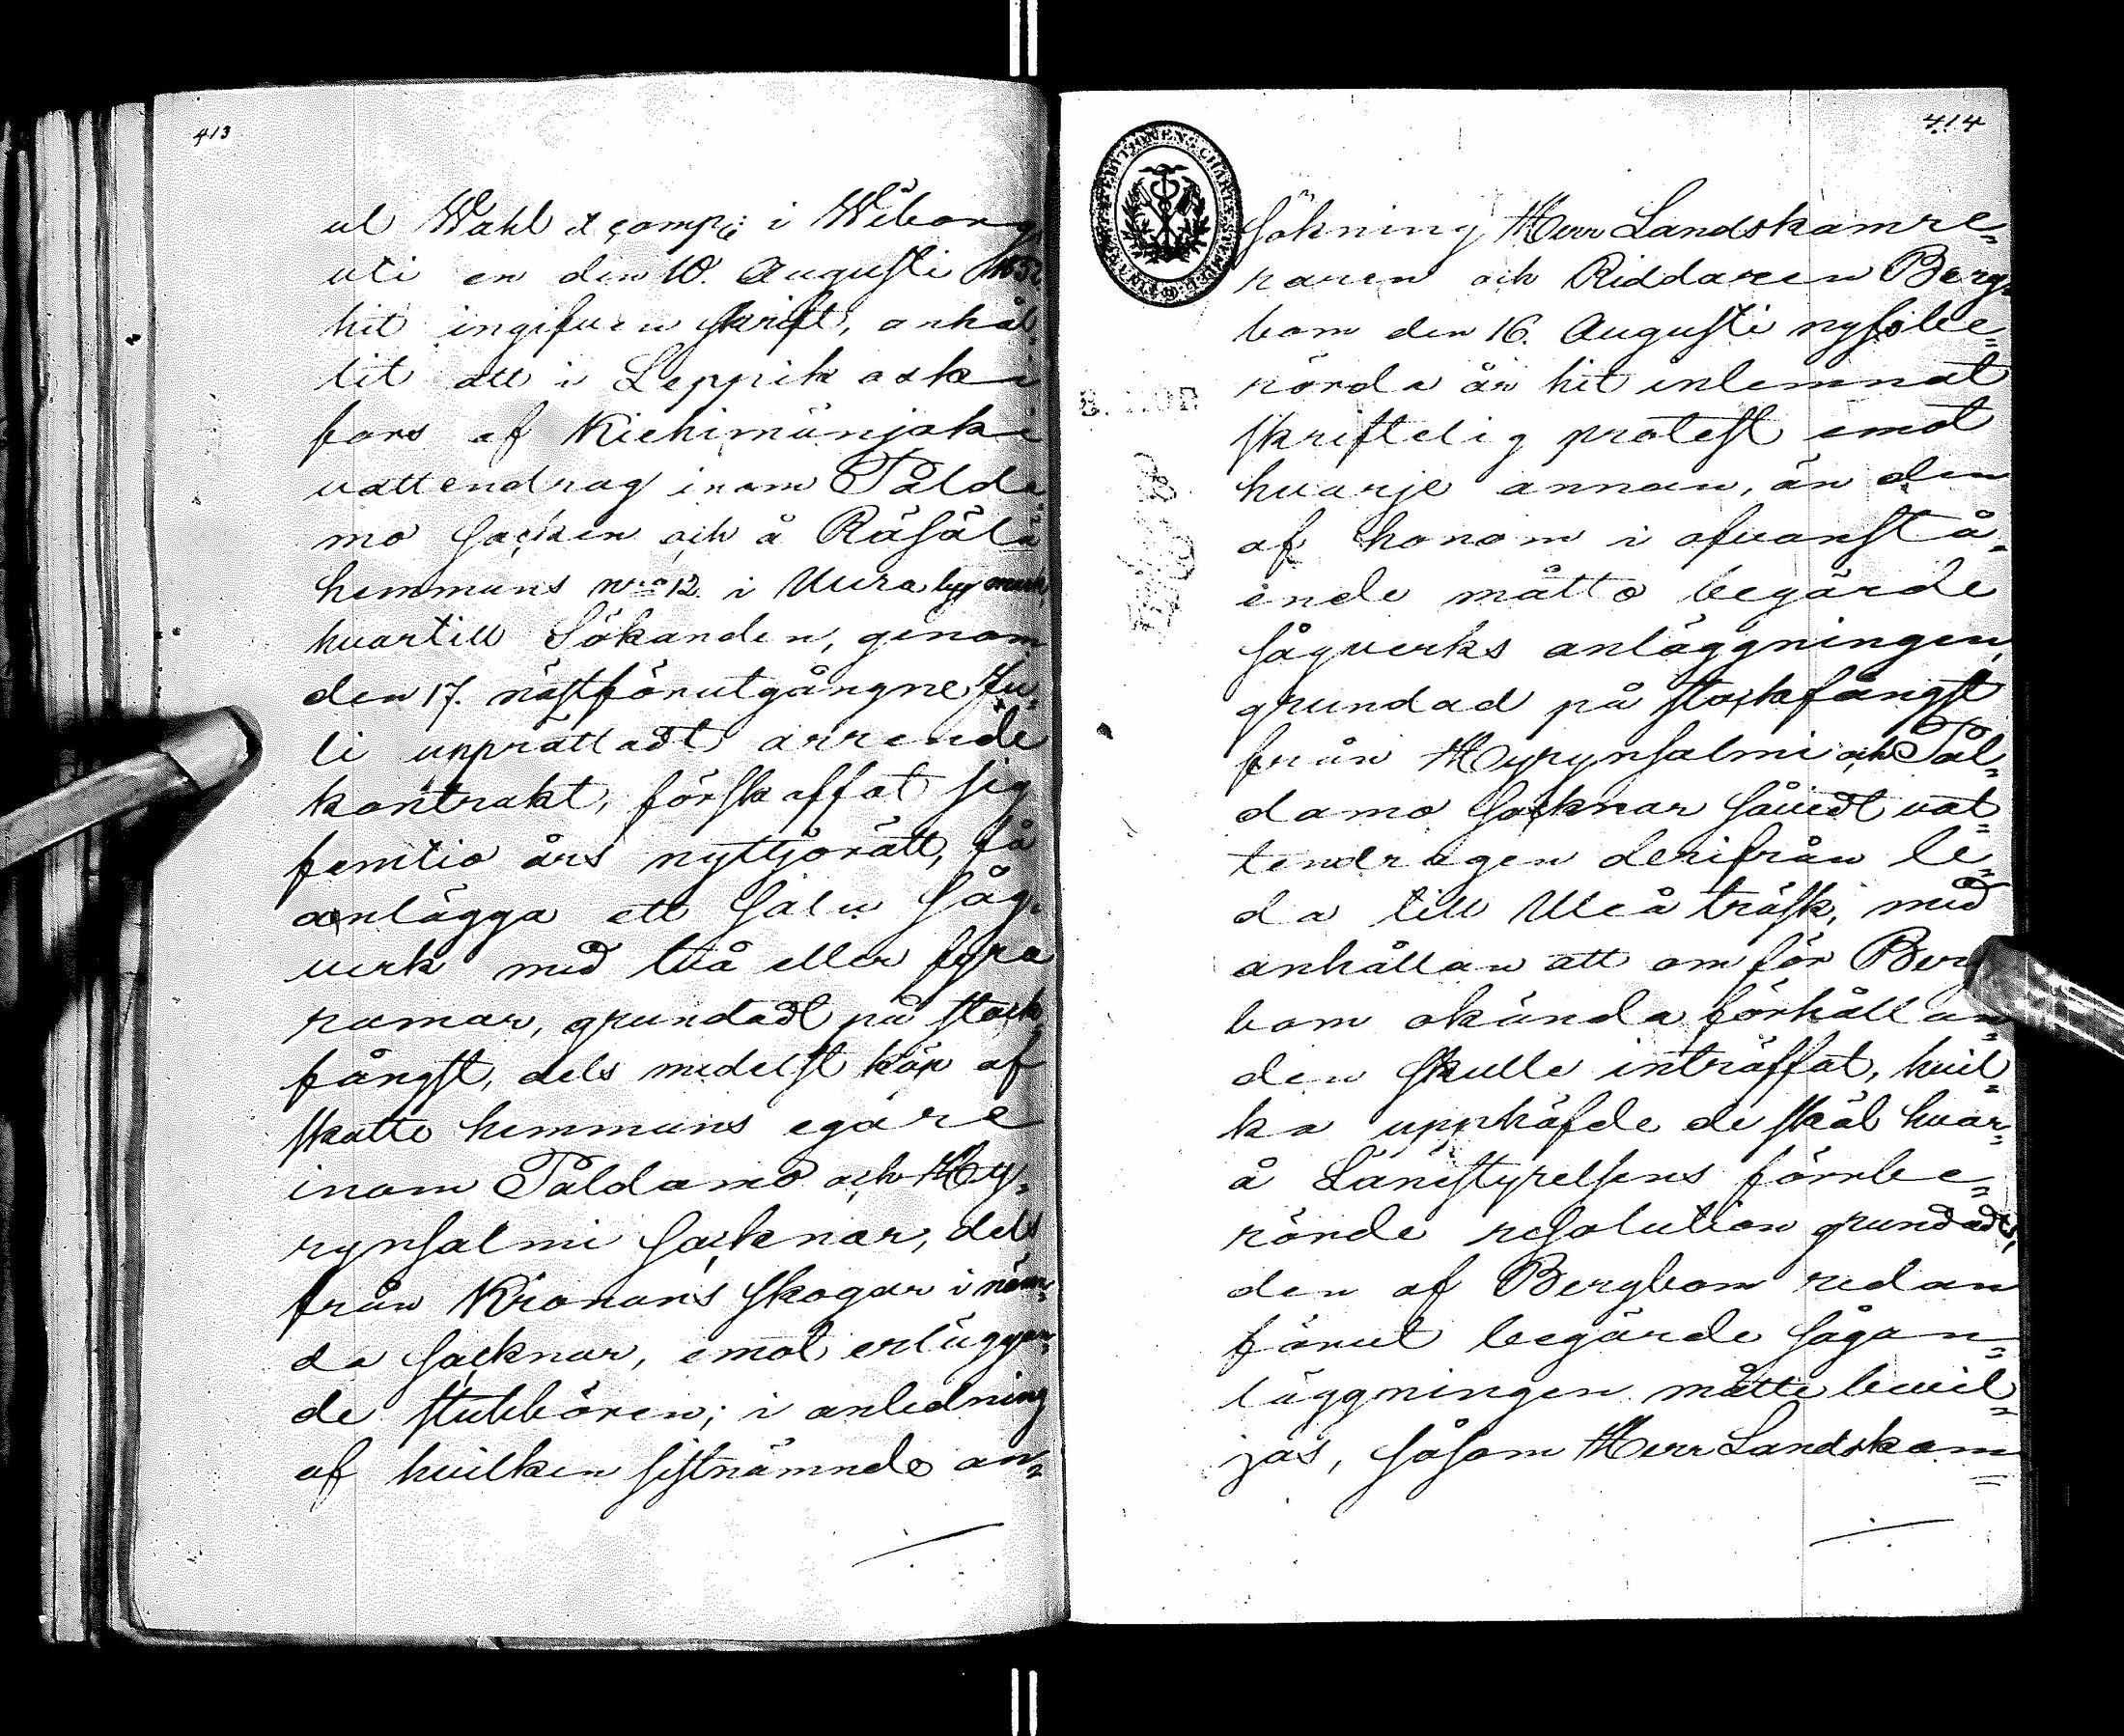 413
al Wahl & Comp: i Wiborg
uti en den 10. Augusti 1852
hit ingifven skrift, anhål-
lit att i Leppikoski
fors af Kiehimänjoki
vattendrag inom Palda-
mo socken och å Räsälä
hemmans Nro 12. i Uura by mark,
hvartill Sökanden, genom
den 17. nästförutgångne Ju-
li upprättadt arrende
kontrakt, förskaffat sig
femtio års nyttjorätt, få
anlägga ett salu såg-
verk med två eller fyra
ramar, grundadt på stock-
fångst, dels medelst köp af
skatte hemmans egare
inom Paldamo och Hy-
rynsalmi socknar, dels
från Kronans skogar i näm-
da socknar, emot erläggan-
de stubbören; i anledning
af hvilken sistnämnde an-
414
sökning Herr Landskamre-
raren och Riddaren Berg-
bom den 16. Augusti nysibe-
rörda år hit inlemnat
skriftelig protest emot
hvarje annan, än den
af honom i ofvanstå-
ende måtto begärde
sågverks anläggningen,
grundad på stockfångst
från Hyrynsalmi och Pal-
damo socknar såvidt vat-
tendragen derifrån le-
da till Uleå träsk, med
anhållan att om för Berg
bom okända förhållan-
den skulle inträffat, hvil-
ka upphäfde de skäl hvar-
å Länestyrelsens förrbe-
rörde resolution grundats,
den af Bergbom redan
förut begärde sågan-
läggningen måtte bevil-
jas, såsom Herr Landskam-